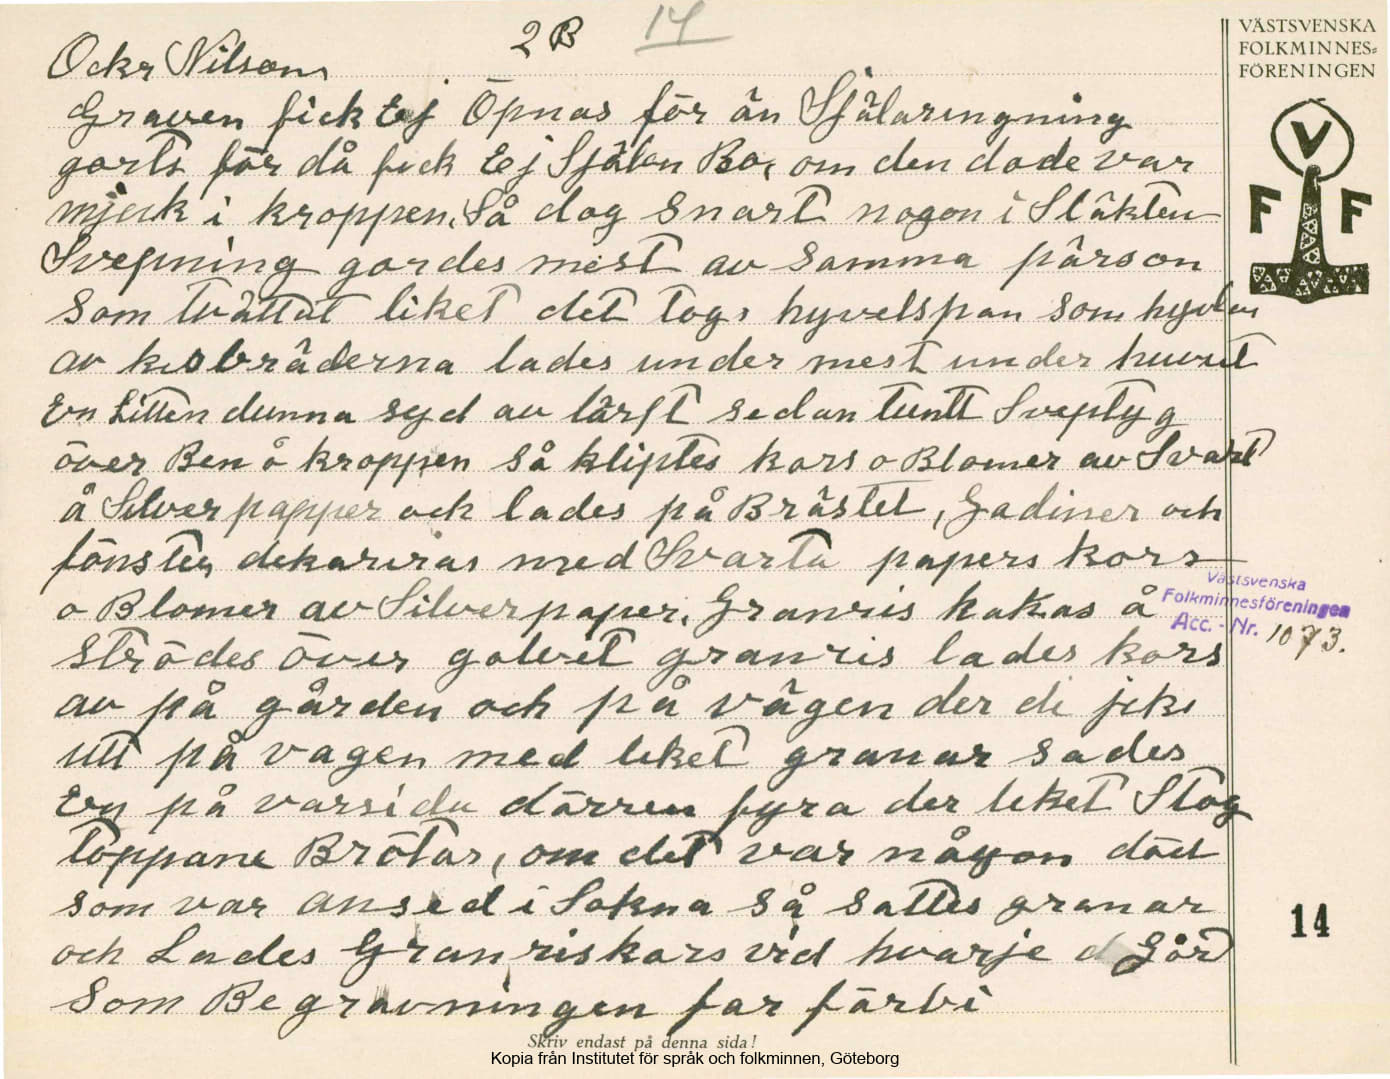 2 B
14
VÄSTSVENSKA
FOLKMINNES=
FÖRENINGEN
V
F F
Ockr Nilsson
Graven fick Ej Öpnas för än Själaringning
gorts för då fick Ej Själen Ro, om den döde var
mjuk i kroppen, Så dog snart nogon i Släkten
Svepning gordes mest av samma pärson
som tvättat liket det togs hyvelspån som hyvlas
av kisbräderna lades under mest under huvut
En Liten dunna syd av lärft sedan tuntt Sveptyg
över Ben å kroppen så kliptes kors o Blomer av Svart
å Silverpapper och lades på Brästet, Gadiner och
fönster dekareras med Svarta papers kors
o Blomer av Silverpaper. Granris hakas å
ströდes över golvet granris lades kors
av på gården och på vägen der di jik
utt på vagen med liket granar sades
En på varsida dörren fyra der liket Stog
toppane Brötas, om det var någon död
som var ansed i Sokna så sattes granar
och Lades Granriskors vid hvarje Gård
som Begravningen far förbi
Västsvenska
Folkminnesföreningen
Acc. - Nr. 1073.
14
Skriv endast på denna sida!
Kopia från Institutet för språk och folkminnen, Göteborg